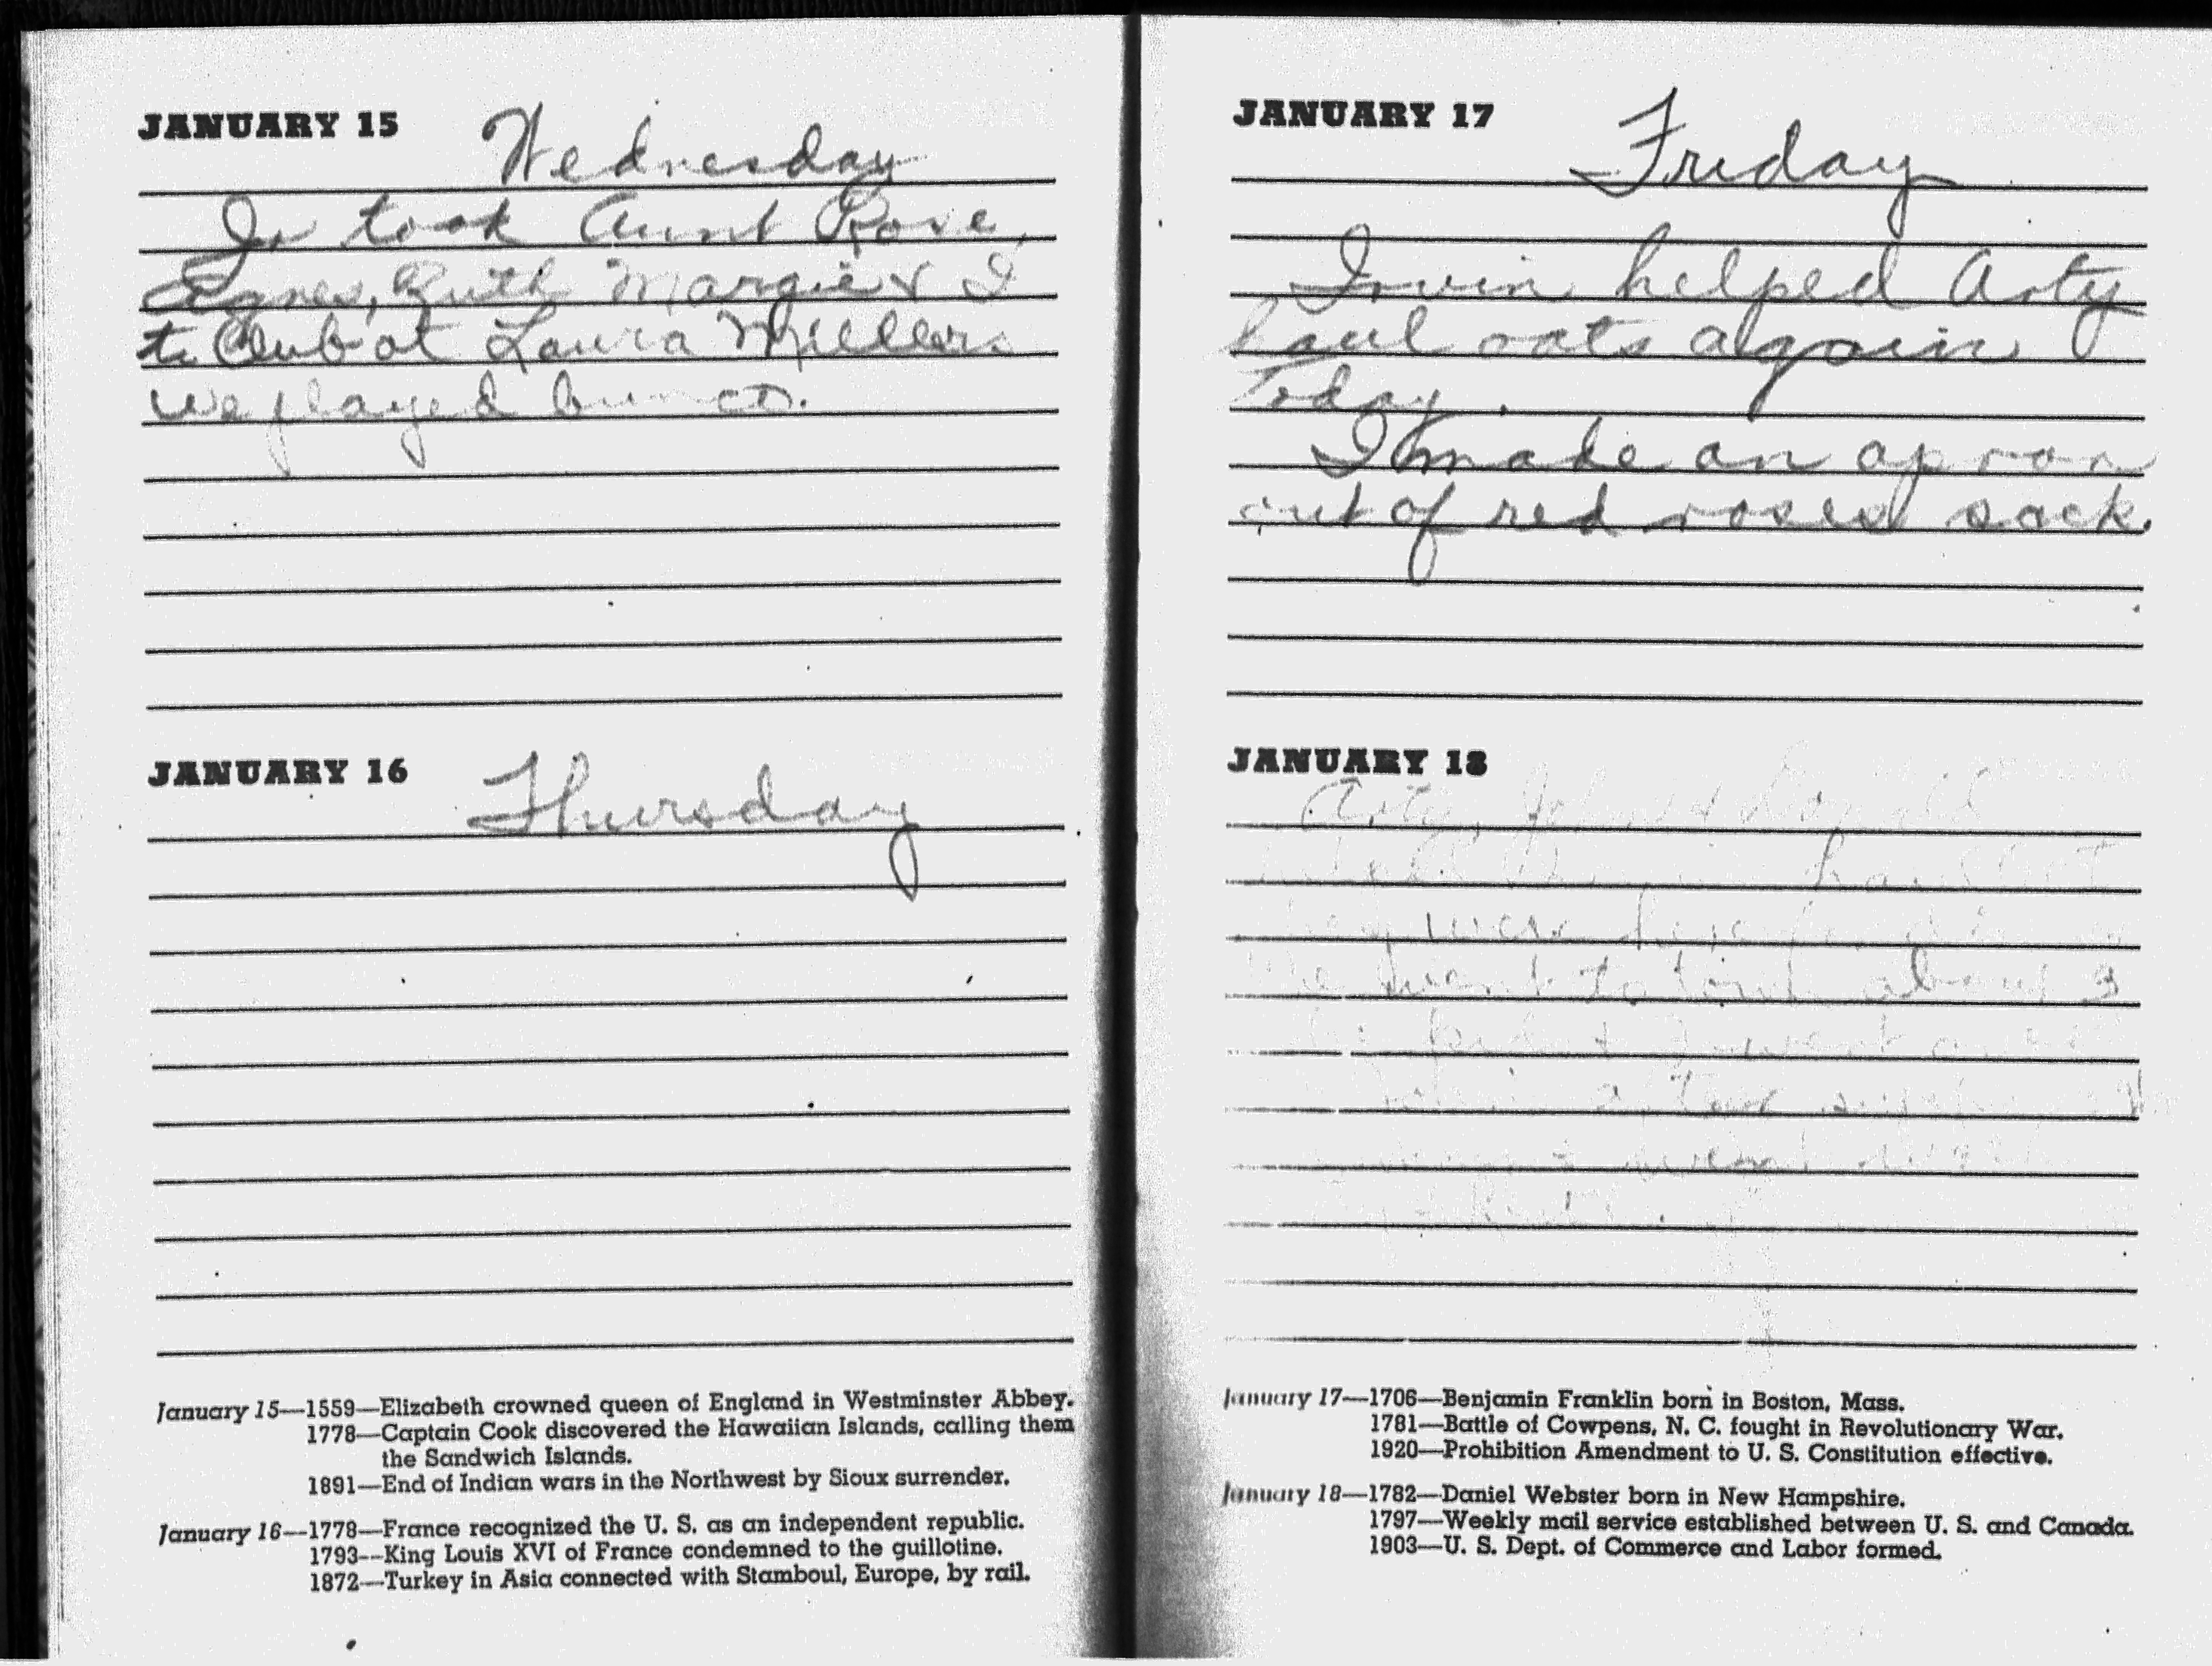 JANUARY 15 Wednesday
Jo took Aunt Rose,
Agnes, Ruth Margie & I
to Club at Laura Millers
We played bunco.
JANUARY 16 Thursday
January 15—1559—Elizabeth crowned queen of England in Westminster Abbey.
1778—Captain Cook discovered the Hawaiian Islands, calling them
the Sandwich Islands.
1891—End of Indian wars in the Northwest by Sioux surrender.
January 16—1778—France recognized the U. S. as an independent republic.
1793—King Louis XVI of France condemned to the guillotine.
1872—Turkey in Asia connected with Stamboul, Europe, by rail.
JANUARY 17 Friday
Irvin helped Arty
haul oats again
Today.
I made an apron
out of red roses sack.
JANUARY 18
Arty, John
were here
We went to town about 3
& I went
after
January 17—1706—Benjamin Franklin born in Boston, Mass.
1781—Battle of Cowpens, N. C. fought in Revolutionary War.
1920—Prohibition Amendment to U. S. Constitution effective.
January 18—1782—Daniel Webster born in New Hampshire.
1797—Weekly mail service established between U. S. and Canada.
1903—U. S. Dept. of Commerce and Labor formed.